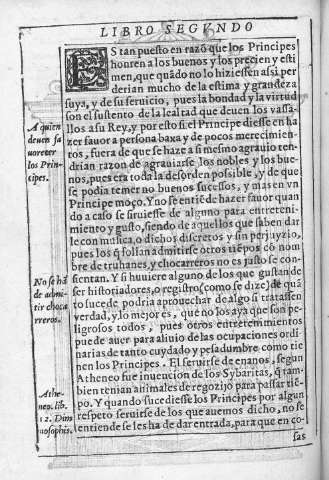 LIBRO SEGVNDO
ES tan puesto en razõ que los Principes
honren a los buenos y los precien y esti
men, que quãdo no lo hiziessen assi per
derian mucho de la estima y grandeza
suya, y de su seruicio, pues la bondad y la virtud
son el sustento de la lealtad que deuen los vassa
llos a su Rey, y por esto si el Principe diesse en ha
zer fauor a persona baxa y de pocos merecimien
tos, fuera de que se haze a si mesmo agrauio ten-
drian razon de agrauiarse los nobles y los bue-
nos, pues era toda la desorden possible, y de que
se podia temer no buenos sucessos, y mas en vn
Principe moço. Y no se entiẽde hazer fauor quan
do a caso se siruiesse de alguno para entreteni-
miento y gusto, siendo de aquellos que saben dar
le con musica, o dichos discretos y sin perjuyzio,
pues los q̃ solian admitirse otros tiẽpos cõ nom
bre de truhanes, y chocarreros no es justo se con-
sientan. Y si huuiere alguno de los que gustan de
ser historiadores, o registros (como se dize) de quã
to sucede podria aprouechar de algo si tratassen
verdad, y lo mejor es, que no los aya que son pe-
ligrosos todos, pues otros entretenimientos
puede auer para aliuio de las ocupaciones ordi
narias de tanto cuydado y pesadumbre como tie
nen los Principes. El seruirse de enanos, segun
Atheneo fue inuencion de los Sybaritas, q̃ tam-
bien tenian animales de regozijo para passar tiẽ-
po. Y quando sucediesse los Principes por algun
respeto seruirse de los que auemos dicho, no se
entiende se les ha de dar entrada, para que en co-
sas
A quien
deuen fa
uorecer
los Prin-
cipes.
No se hã
de admi-
tir choca
rreros.
Athe-
neo. lib.
12. Dim
nosophis.